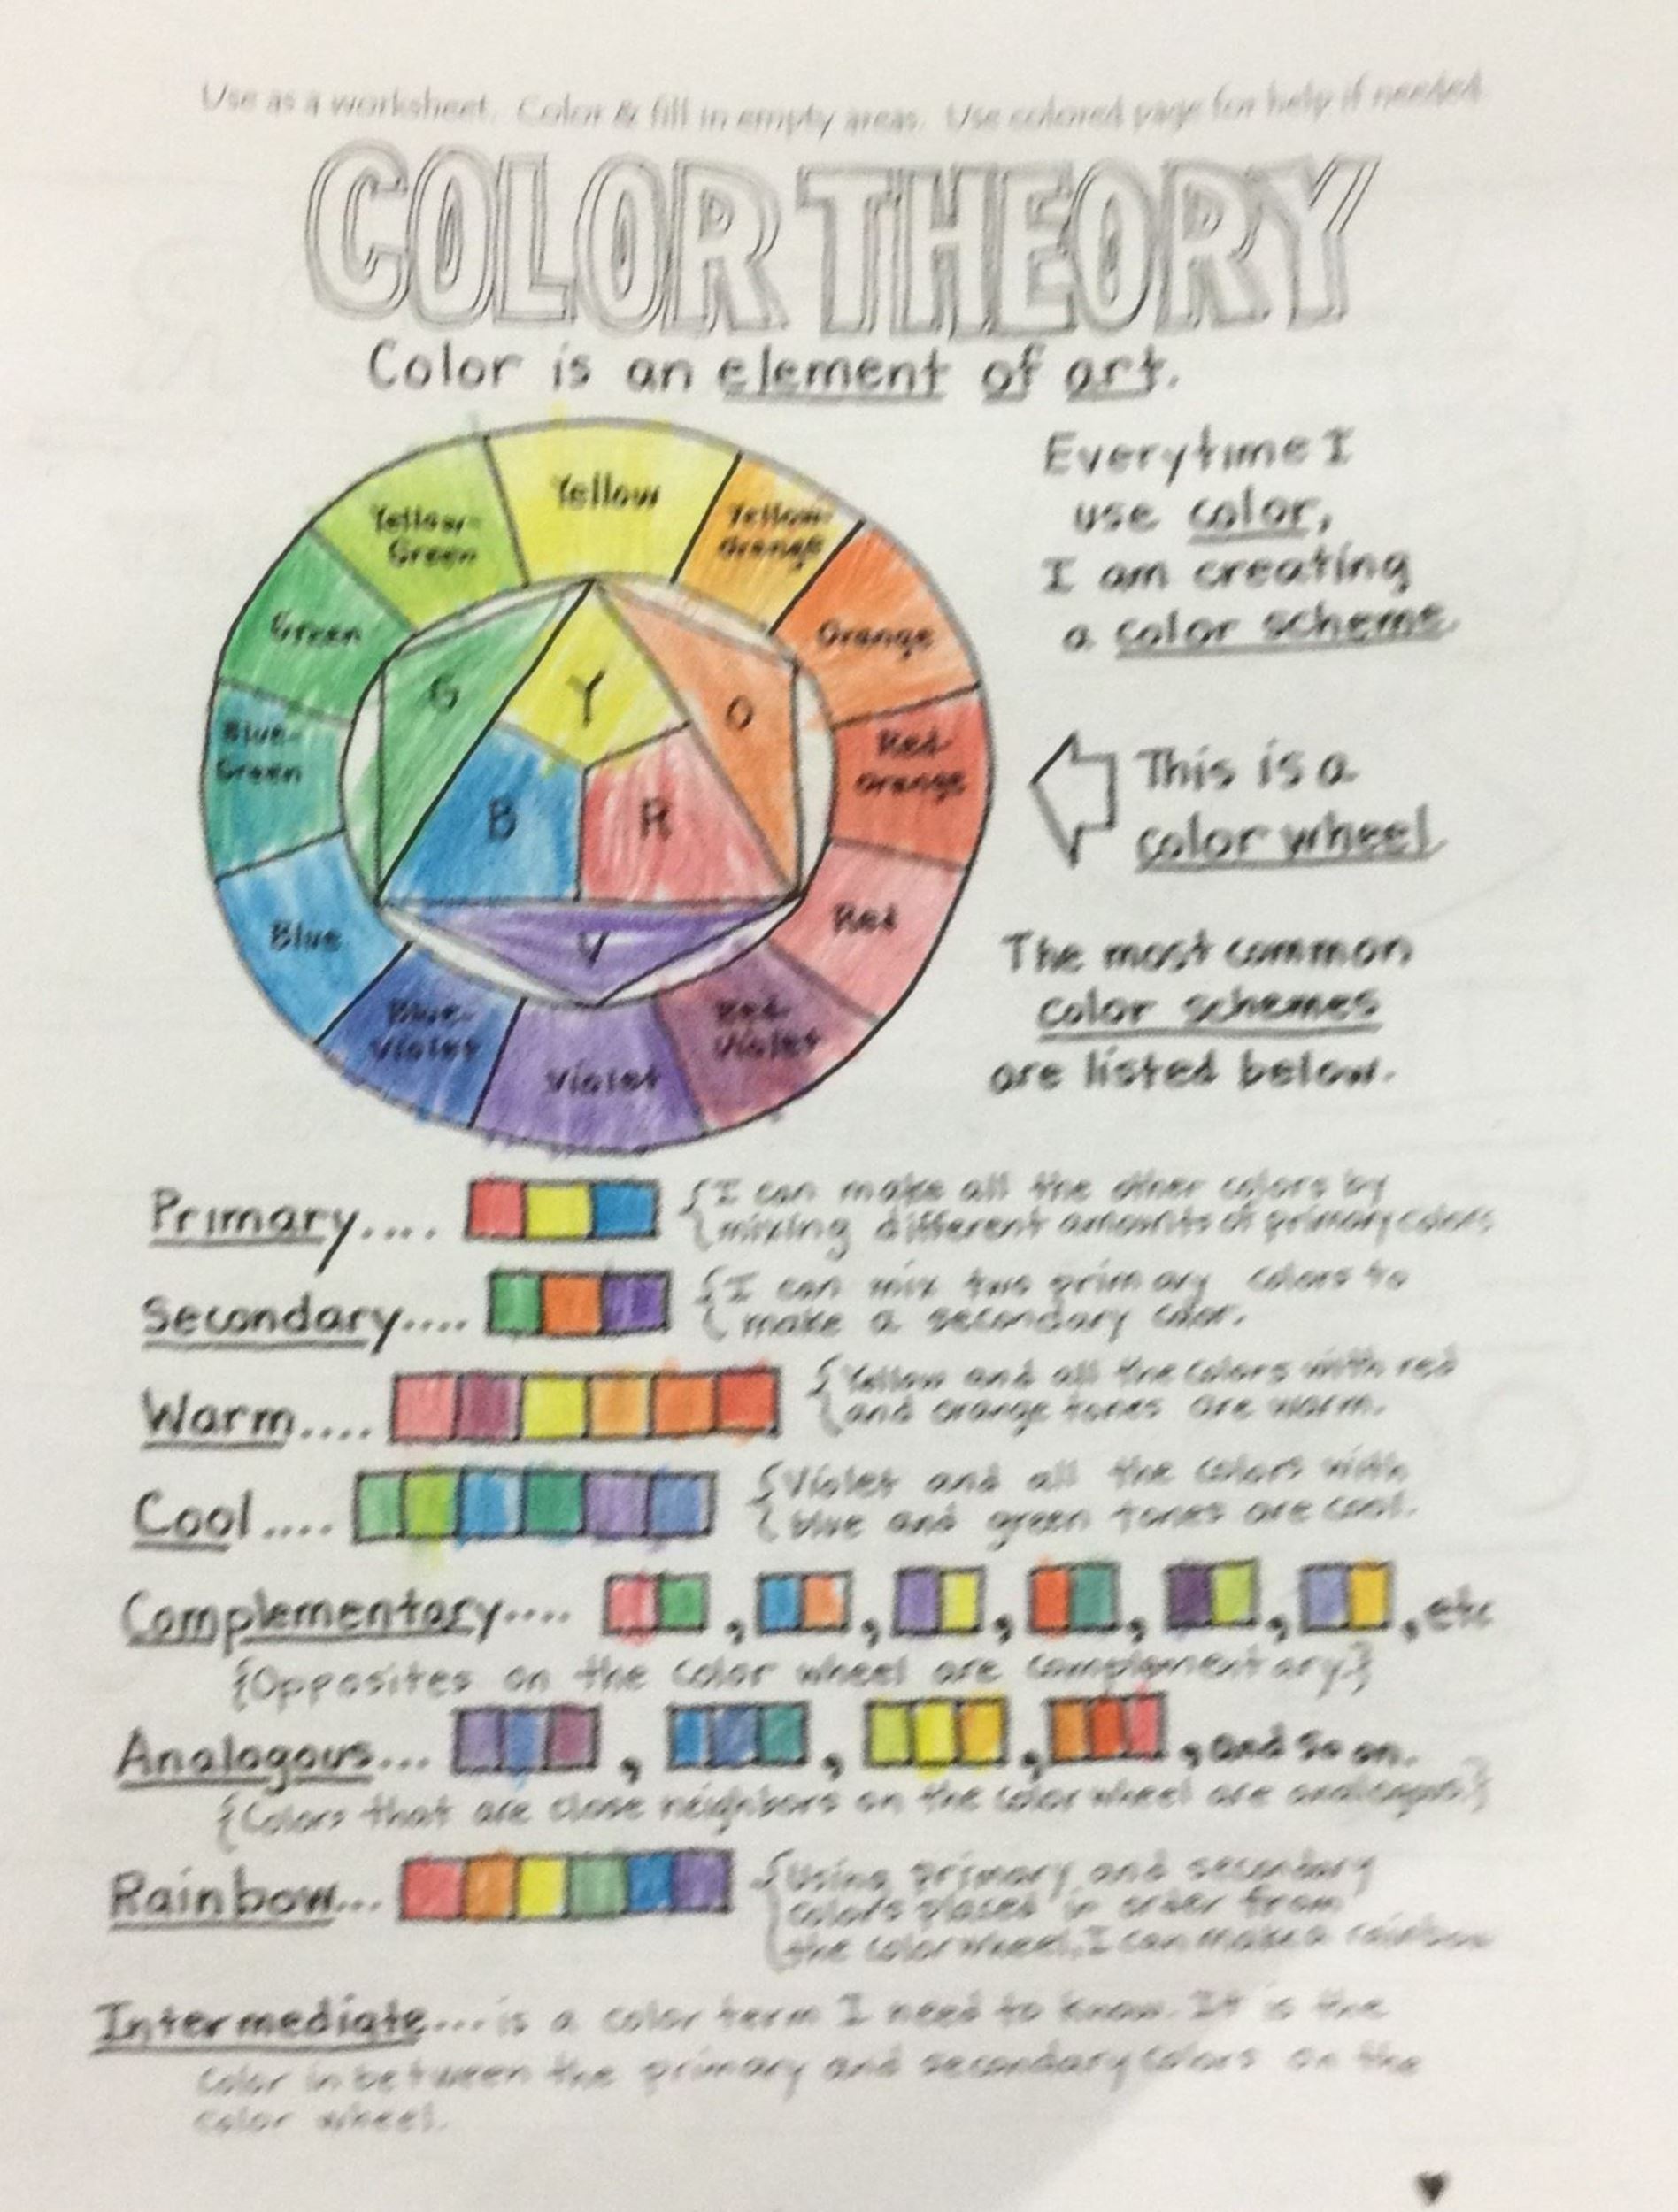 Use as a worksheet. Color & fill in empty areas. Use colored page for help if needed.
COLOR THEORY
Color is an element of art.
Everytime I
use color,
I am creating
a color scheme.
Yellow
Yellow-
Green
Yellow-
Orange
Green
Orange
G
Y
O
Blue-
Green
Red-
Orange
B
R
Blue
Red
V
Blue-
Violet
Red-
Violet
Violet
This is a
color wheel.
The most common
color schemes
are listed below.
Primary.... {I can make all the other colors by
mixing different amounts of primary colors
Secondary.... {I can mix two primary colors to
make a secondary color.
Warm.... {Yellow and all the colors with red
and orange tones are warm.
Cool.... {Violet and all the colors with
blue and green tones are cool.
Complementary.... , , , , , , etc
{Opposites on the color wheel are complementary.}
Analogous... , , , , and so on.
{Colors that are close neighbors on the color wheel are analogous}
Rainbow... {Using primary and secondary
colors placed in order from
the color wheel, I can make a rainbow
Intermediate....is a color term I need to know. It is the
color in between the primary and secondary colors on the
color wheel.